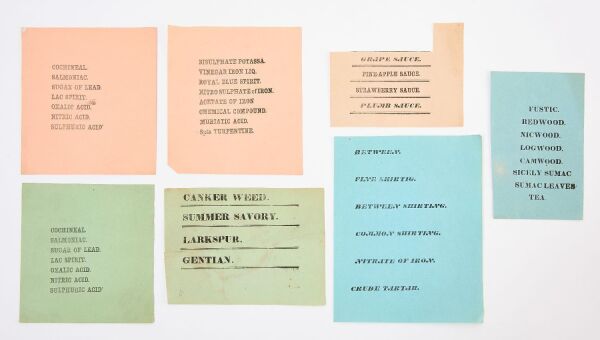 COCHINEAL.
SALMONIAC.
SUGAR OF LEAD.
LAC SPIRIT.
OXALIC ACID.
NITRIC ACID.
SULPHURIC ACID
BISULPHATE POTASSA.
VINEGAR IRON LIQ.
ROYAL BLUE SPIRIT.
NITRO SULPHATE of IRON.
ACETATE OF IRON
CHEMICAL COMPOUND.
MURIATIC ACID.
Spts TURPENTINE.
GRAPE SAUCE.
PINE-APPLE SAUCE.
STRAWBERRY SAUCE.
PLUMB SAUCE.
FUSTIC.
REDWOOD.
NICWOOD.
LOGWOOD.
CAMWOOD.
SICELY SUMAC
SUMAC LEAVES
TEA.
COCHINEAL
SALMONIAC.
SUGAR OF LEAD.
LAC SPIRIT.
OXALIC ACID.
NITRIC ACID.
SULPHURIC ACID
CANKER WEED.
SUMMER SAVORY.
LARKSPUR.
GENTIAN.
BETWEEN.
FINE SHIRTIG.
BETWEEN SHIRTING.
COMMON SHIRTING.
NITRATE OF IRON.
CRUDE TARTAR.